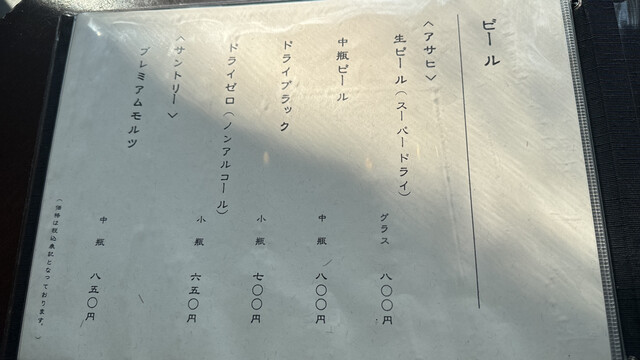 ビール
〈アサヒ〉
生ビール(スーパードライ) グラス 八〇〇円
中瓶ビール 中瓶 八〇〇円
ドライブラック 小瓶 七〇〇円
ドライゼロ(ノンアルコール) 小瓶 六五〇円
〈サントリー〉
プレミアムモルツ 中瓶 八五〇円
(価格は税込表記となっております。)